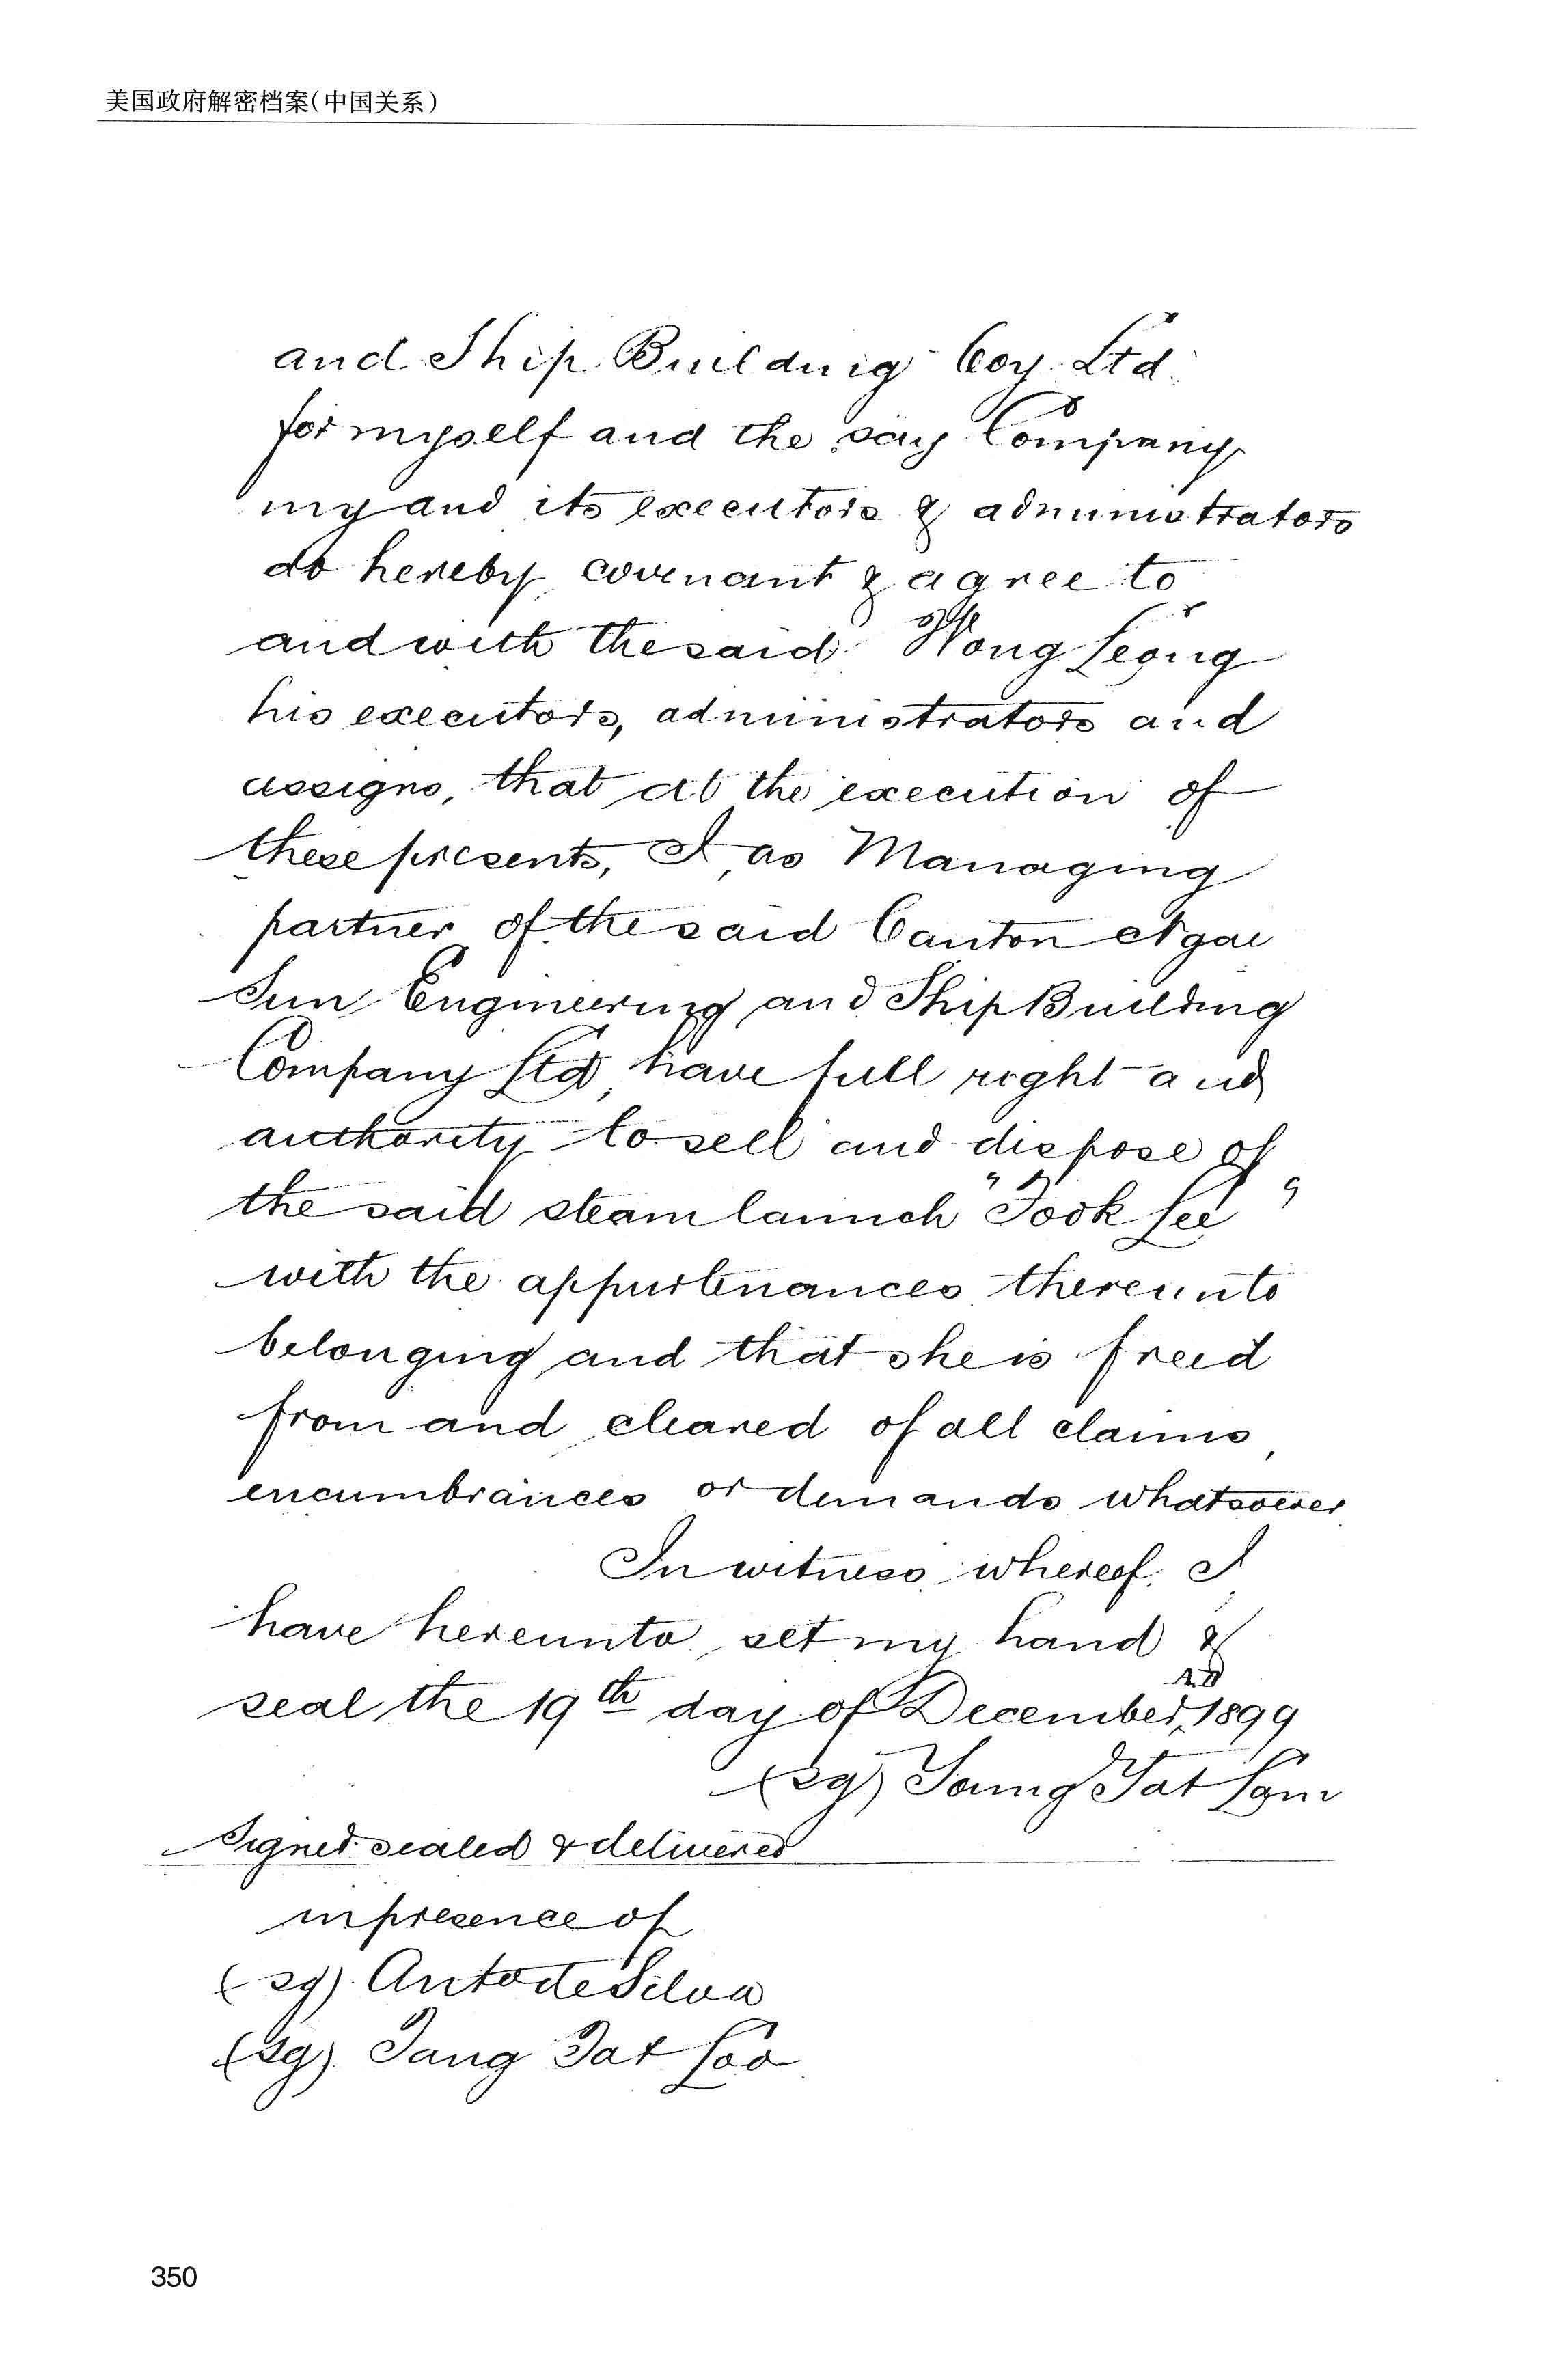 美国政府解密档案(中国关系)
and Ship Building Coy. Ltd.
for myself and the say Company
my and its executors & administrators
do hereby covenant & agree to
and with the said Wong Leong
his executors, administrators and
assigns, that at the execution of
these presents, I, as Managing
partner of the said Canton Ngai
Sun Engineering and Ship Building
Company Ltd, have full right and
authority to sell and dispose of
the said steam launch "Took Lee"
with the appurtenances thereunto
belonging and that she is freed
from and cleared of all claims,
encumbrances or demands whatsoever
In witness whereof, I
have hereunto set my hand &
seal the 19th day of December, AD 1899
(sg) Tat
Signed sealed & delivered
in presence of
(sg). de Silva
(sg) Tang Tat Loo
350